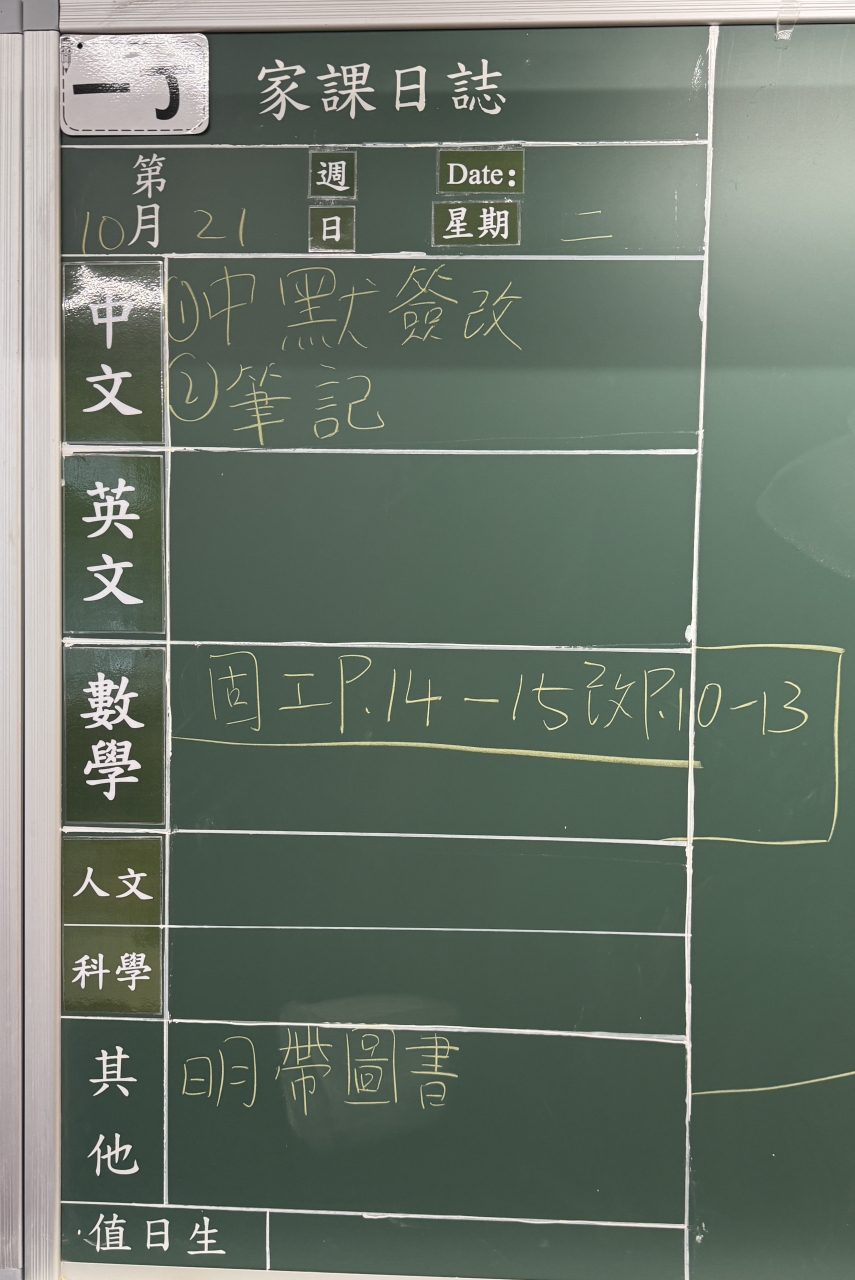 一丁 家課日誌
第 週 Date:
10月 21 日 星期 二
中文 ①中默簽改
②筆記
英文
數學 固工P.14-15改P.10-13
人文
科學
其他 明帶圖書
值日生